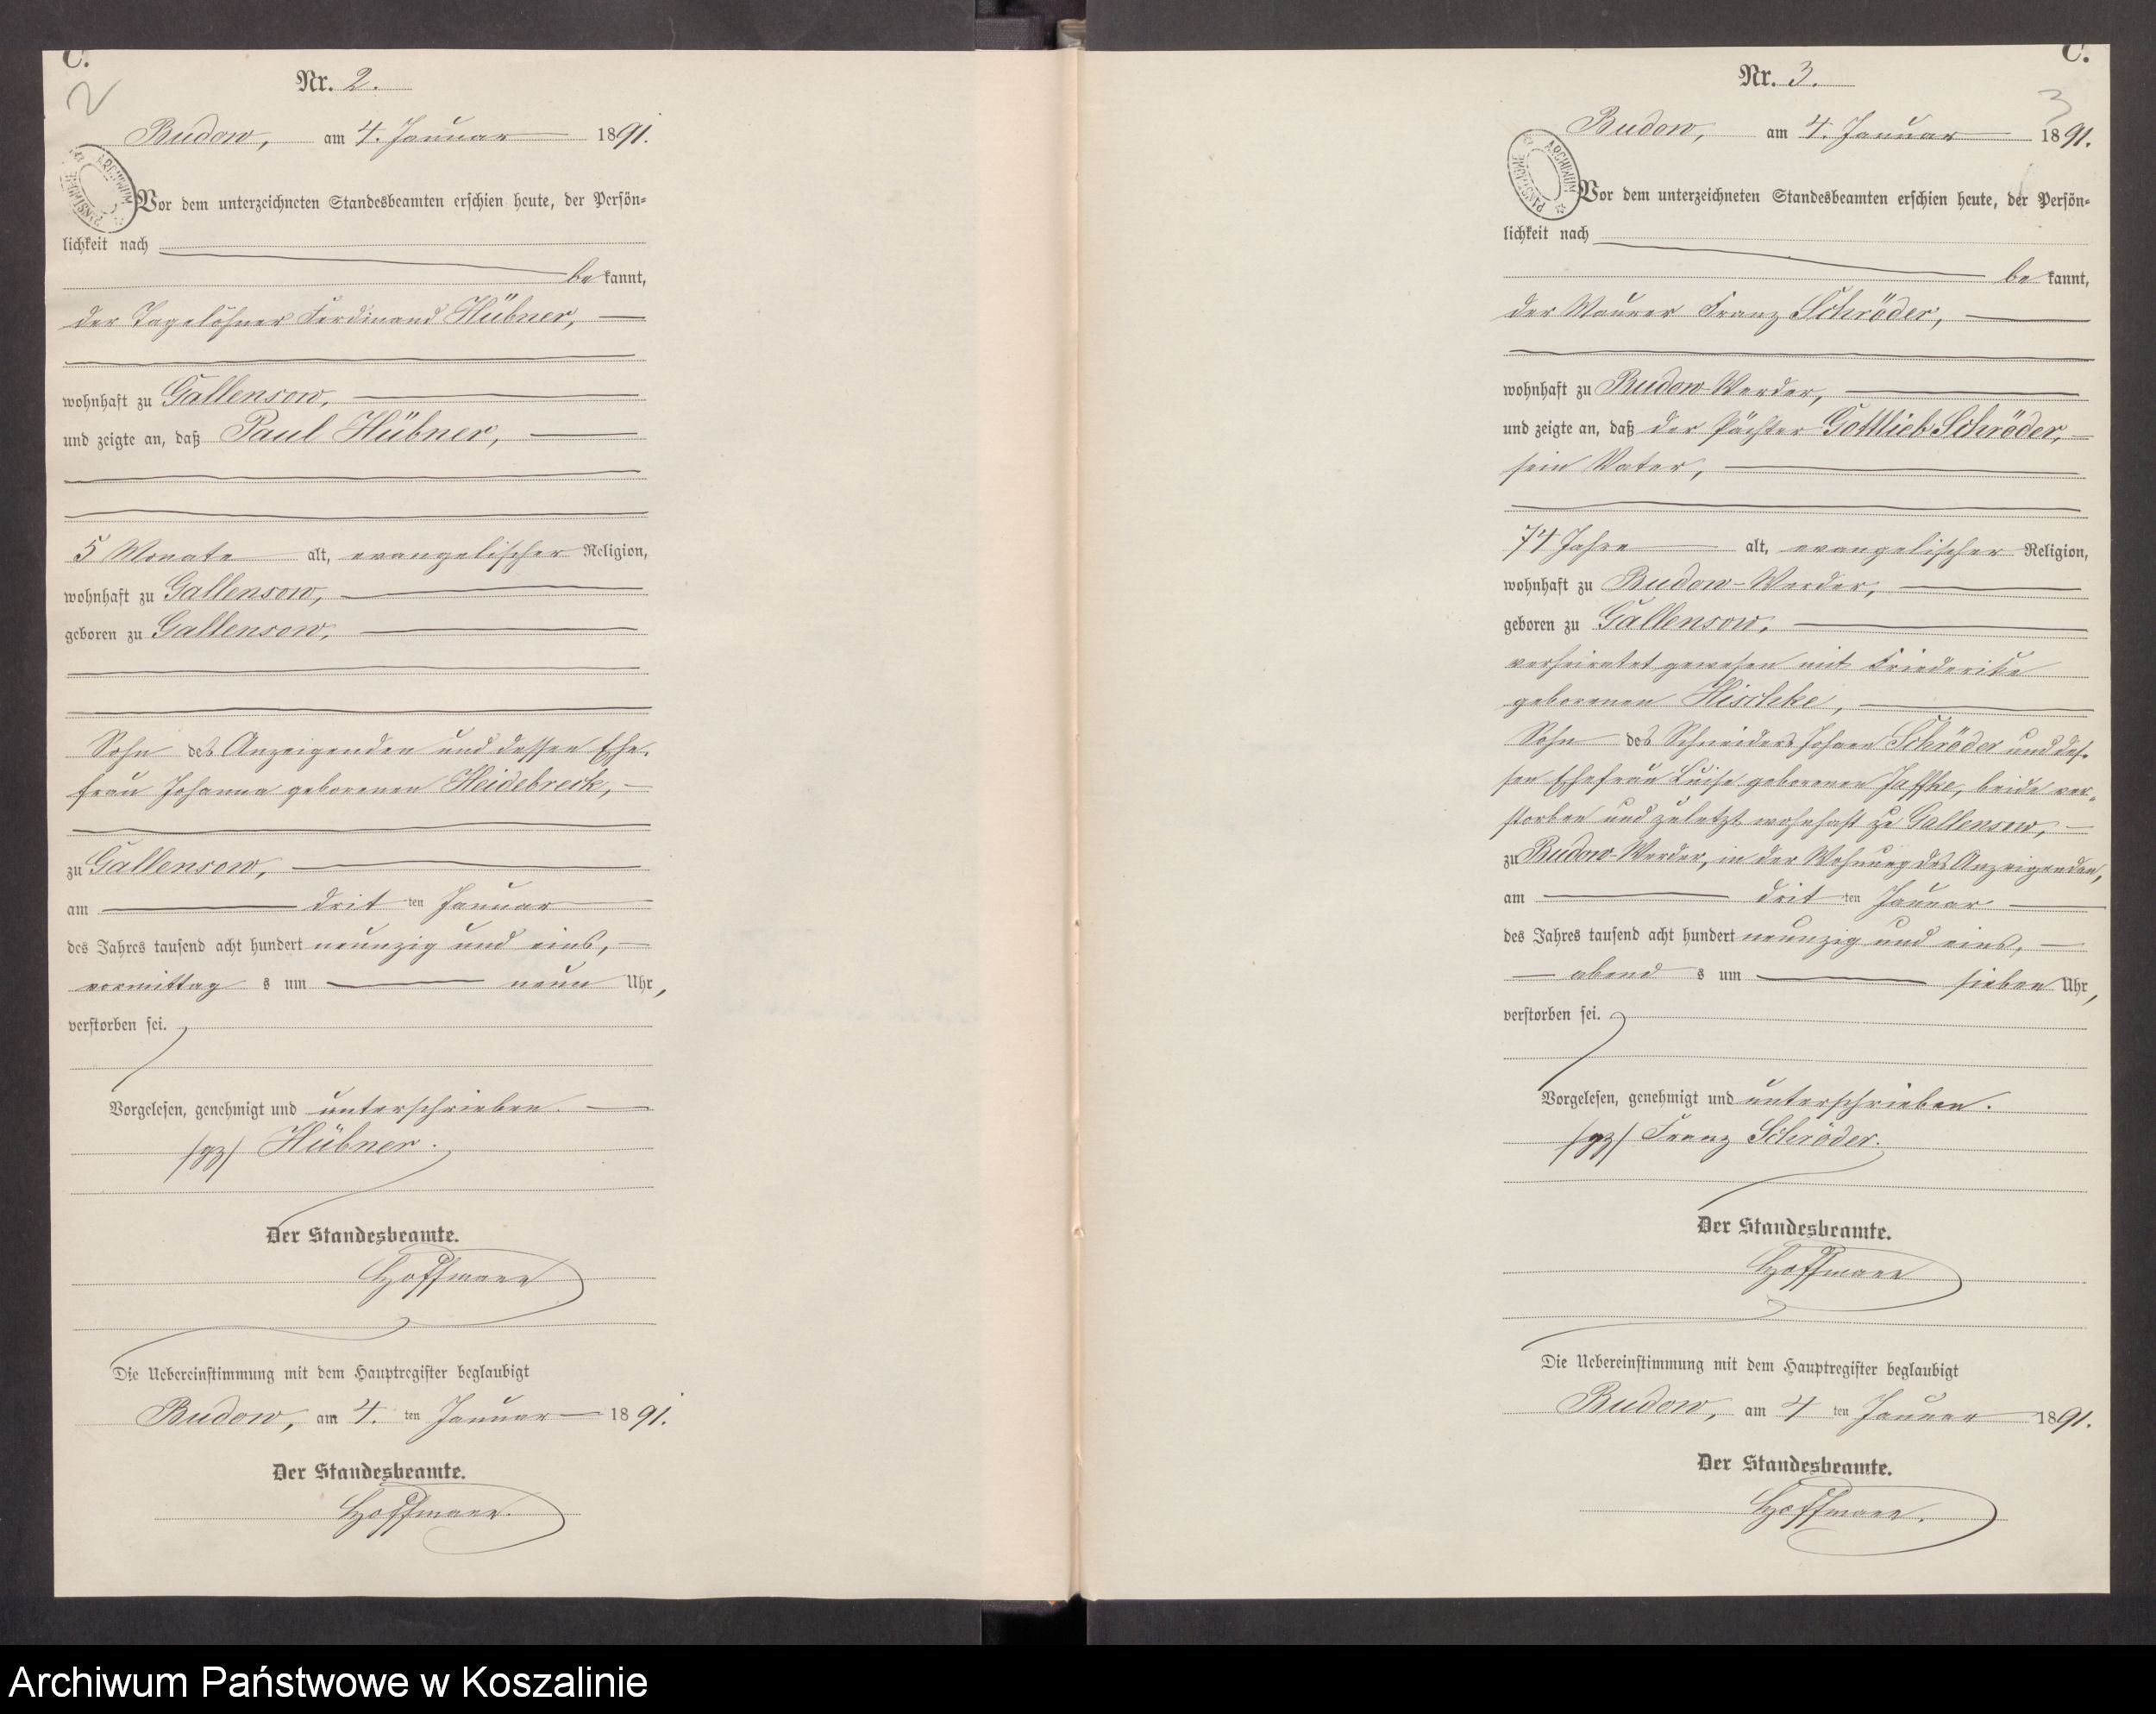 C.
2
Nr. 2.
Budow, am 4. Januar 1891.
Vor dem unterzeichneten Standesbeamten erschien heute, der Persön-
lichkeit nach
be kannt,
der Tagelöhner Ferdinand Hübner,
wohnhaft zu Gallensow,
und zeigte an, daß Paul Hübner,
5 Monate alt, evangelischer Religion,
wohnhaft zu Gallensow,
geboren zu Gallensow,
Sohn des Anzeigenden und dessen Ehe-
frau Johanna geborenen Heidebreck,
zu Gallensow,
am drit ten Januar
des Jahres tausend acht hundert neunzig und eins,
vormittag s um neun Uhr,
verstorben sei.
Vorgelesen, genehmigt und unterschrieben.
/gz/ Hübner.
Der Standesbeamte.
Hoffmann
Die Uebereinstimmung mit dem Hauptregister beglaubigt
Budow, am 4. ten Januar 1891.
Der Standesbeamte.
Hoffmann.
C.
3
Nr. 3.
Budow, am 4. Januar 1891.
ARCHIWUM PAŃSTWOWE
Vor dem unterzeichneten Standesbeamten erschien heute, der Persön-
lichkeit nach
be kannt,
der Maurer Franz Schröder,
wohnhaft zu Budow-Werder,
und zeigte an, daß der Pächter Gottlieb Schröder,
sein Vater,
74 Jahre alt, evangelischer Religion,
wohnhaft zu Budow-Werder,
geboren zu Gallensow,
verheiratet gewesen mit Friederike
geborenen Hischke,
Sohn des Schneiders Johann Schröder und des-
sen Ehefrau Luise geborenen Jaffke, beide ver-
storben und zuletzt wohnhaft zu Gallensow,
zu Budow-Werder, in der Wohnung des Anzeigenden,
am drit ten Januar
des Jahres tausend acht hundert neunzig und eins,
abend s um sieben Uhr,
verstorben sei.
Vorgelesen, genehmigt und unterschrieben.
/gz/ Franz Schröder.
Der Standesbeamte.
Hoffmann
Die Uebereinstimmung mit dem Hauptregister beglaubigt
Budow, am 4 ten Januar 1891.
Der Standesbeamte.
Hoffmann.
Archiwum Państwowe w Koszalinie